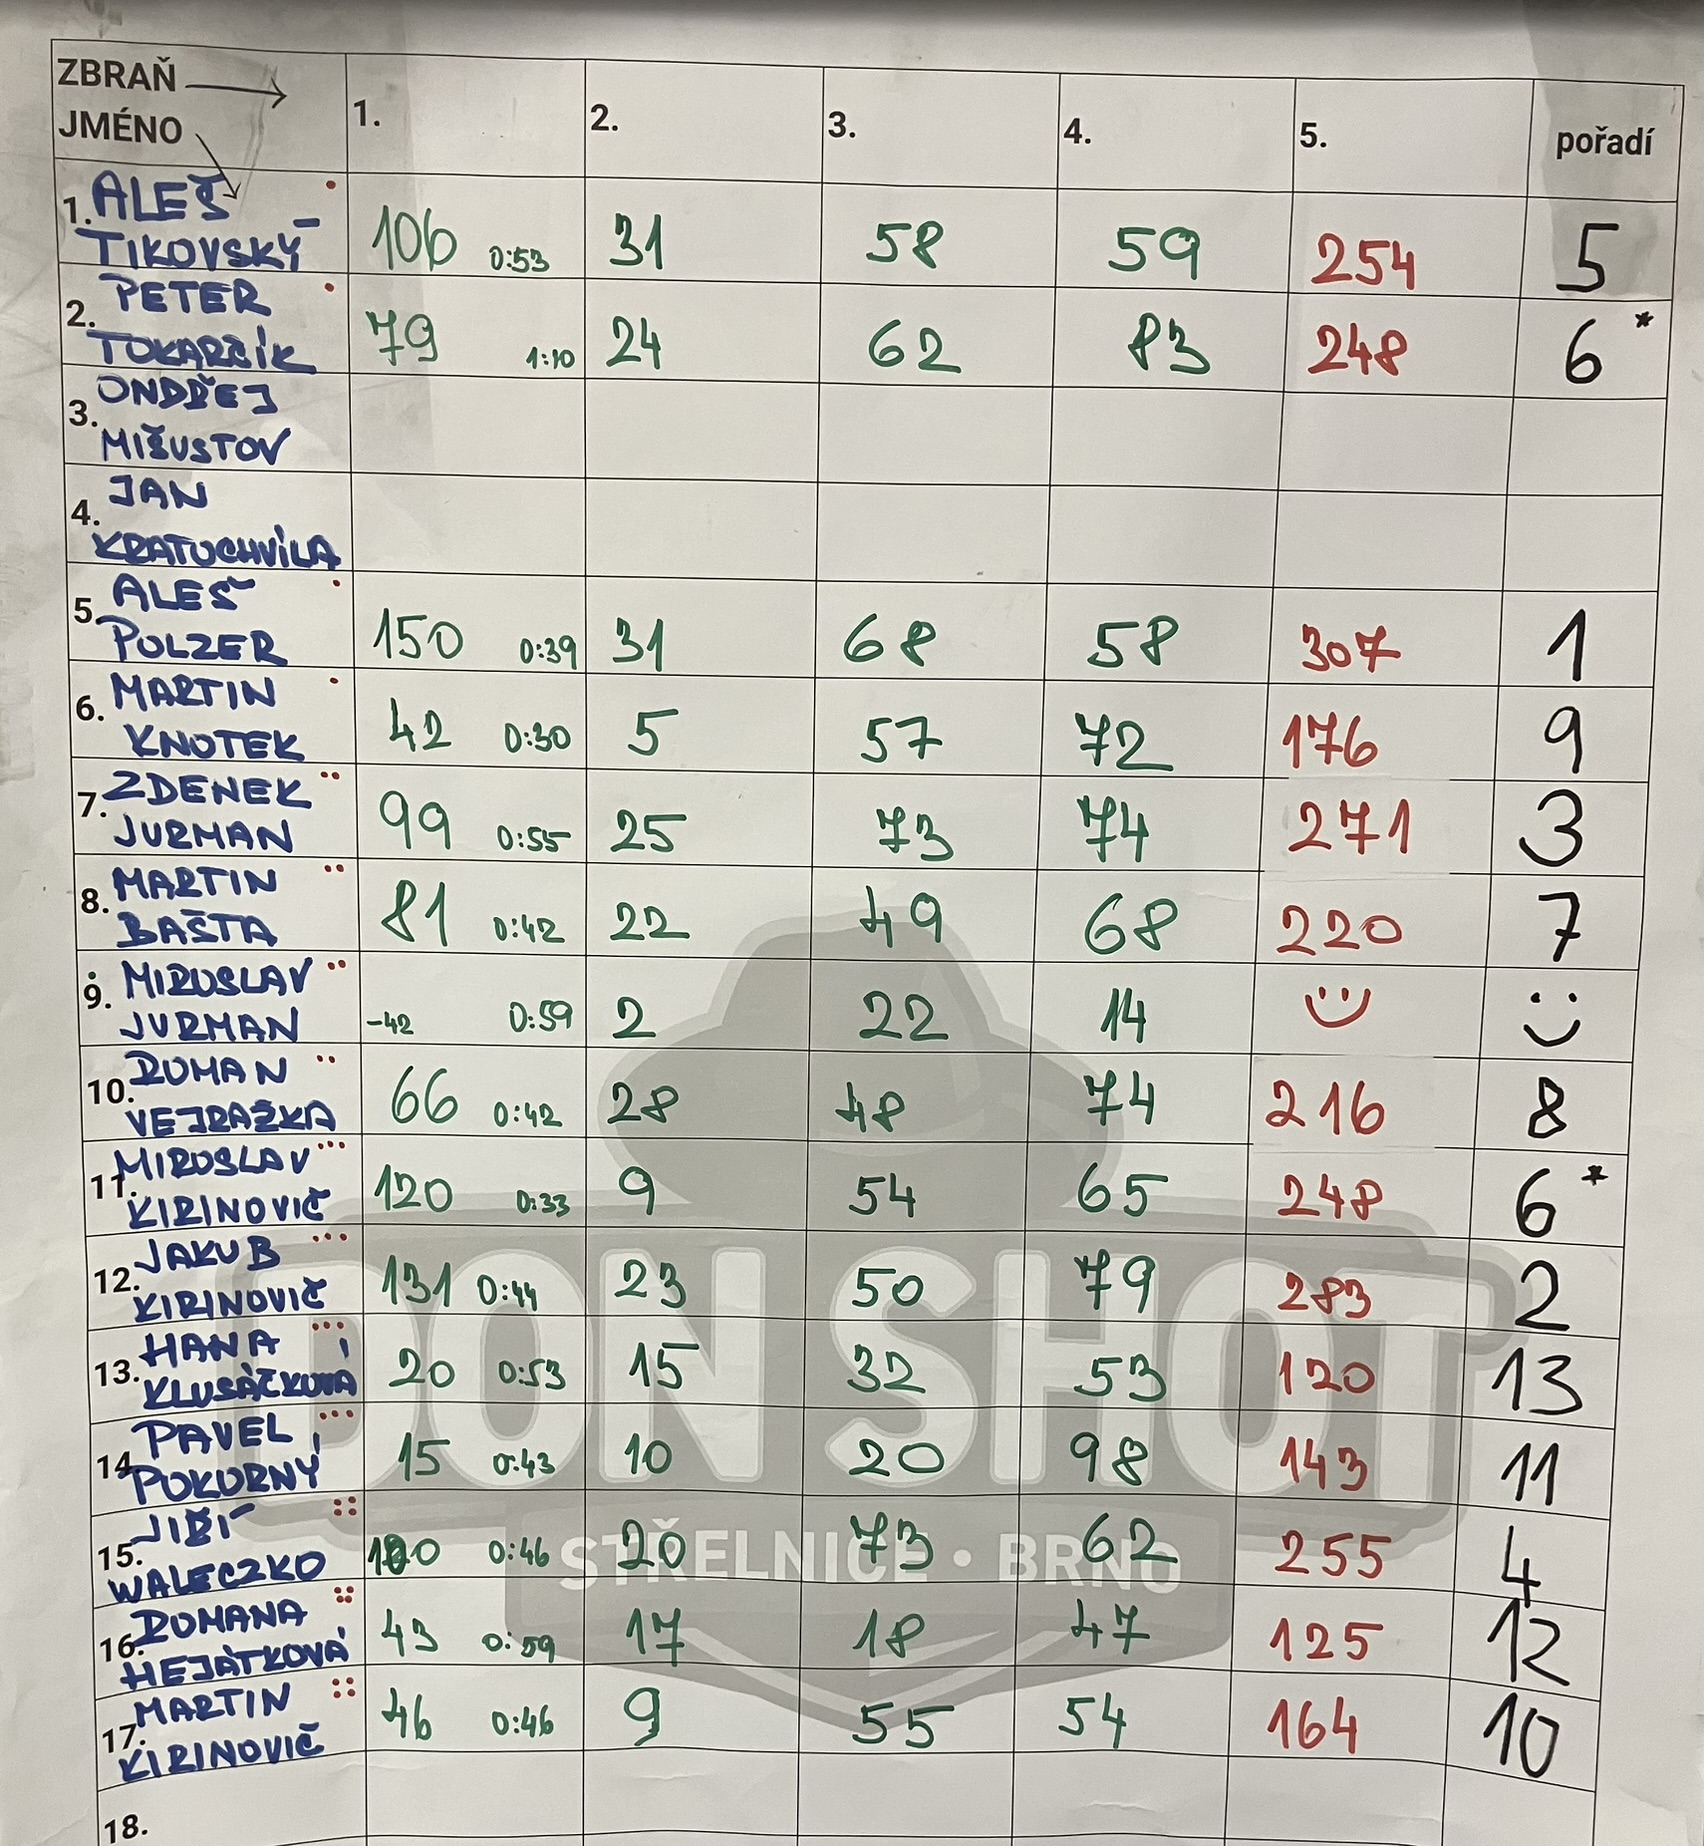 ZBRAŇ
JMÉNO 1. 2. 3. 4. 5. pořadí
1. ALEŠ
TIKOVSKÝ 106 0:53 31 58 59 254 5
2. PETER
TOKARČÍK 79 1:10 24 62 83 248 6*
3. ONDŘEJ
MIŠUSTOV
4. JAN
KRATOCHVÍLA
5. ALEŠ
POLZER 150 0:39 31 68 58 307 1
6. MARTIN
KNOTEK 42 0:30 5 57 72 176 9
7. ZDENEK
JURMAN 99 0:55 25 73 74 271 3
8. MARTIN
BAŠTA 81 0:42 22 49 68 220 7
9. MIROSLAV
JURMAN -42 0:59 2 22 14
10. ROMAN
VEJRAŽKA 66 0:42 28 48 74 216 8
11. MIROSLAV
KIRINOVIČ 120 0:33 9 54 65 248 6*
12. JAKUB
KIRINOVIČ 131 0:44 23 50 79 283 2
13. HANA
KLUSÁČKOVÁ 20 0:53 15 32 53 120 13
14. PAVEL
POKORNÝ 15 0:43 10 20 98 143 11
15. JIŘÍ
WALECZKO 100 0:46 20 73 62 255 4
16. ROMANA
HEJÁTKOVÁ 43 0:59 17 18 47 125 12
17. MARTIN
KIRINOVIČ 46 0:46 9 55 54 164 10
18.
DON SHOT
STŘELNICE • BRNO